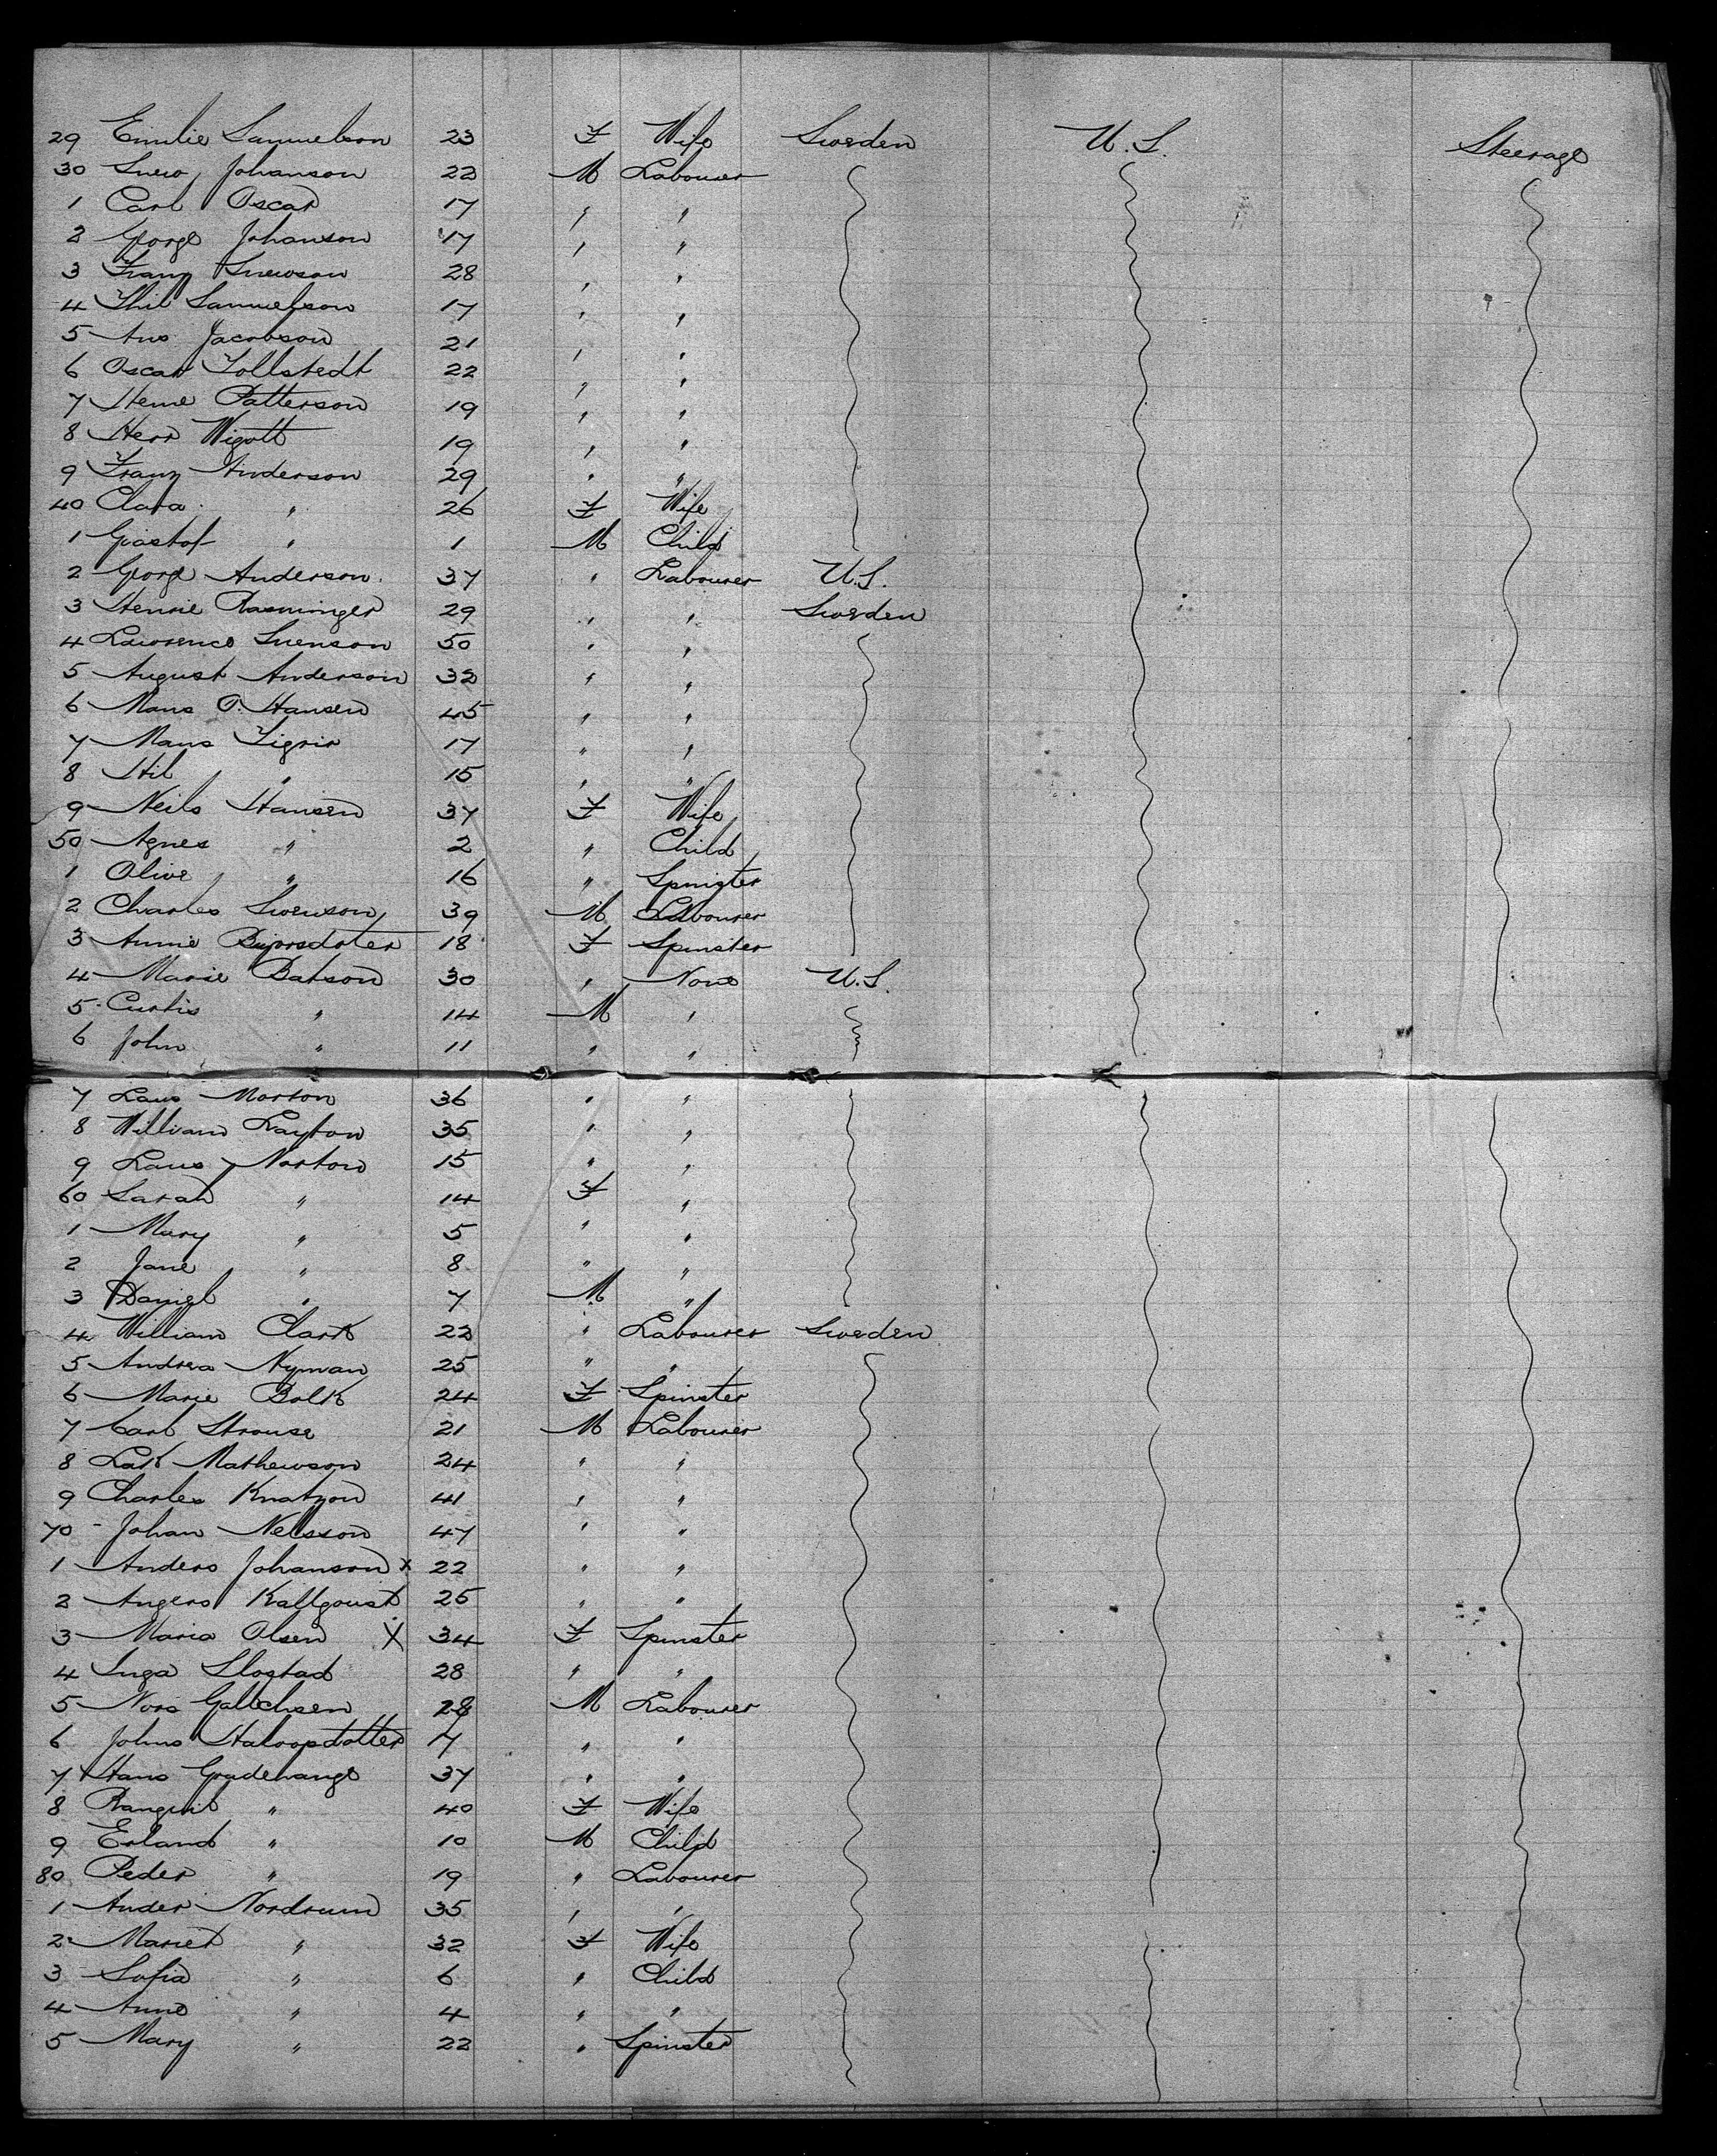 29 Emilie Samuelson 23 F Wife Sweden U.S. Steerage
30 Johanson 22 M Labourer
1 Carl Oscar 17 " "
2 George Johanson 17 " "
3 Franz Snewson 28 " "
4 Samuelson 17 " "
5 Jacobson 21 " "
6 Oscar Tollstedt 22 " "
7 Patterson 19 " "
8 Herr Wigott 19 " "
9 Franz Anderson 29 " "
40 Clara " 26 F Wife
1 Gustof " 1 M Child
2 George Anderson 37 " Labourer U.S.
3 29 " " Sweden
4 Lawrence Svenson 50 " "
5 August Anderson 32 " "
6 Mans O. Hansen 45 " "
7 Mans 17 " "
8 Hil " 15 " "
9 Neils Hansen 37 F Wife
50 Agnes " 2 " Child
1 Olive " 16 " Spinster
2 Charles Swenson 39 M Labourer
3 Annie 18 F Spinster
4 Marie Batson 30 " None U.S.
5 Curtis " 14 M "
6 John " 11 " "
7 Laus Morton 36 " "
8 William Layton 35 " "
9 Laus Norton 15 " "
60 Sarah " 14 F "
1 Mary " 5 " "
2 Jane " 8 " "
3 Daniel " 7 M "
4 William Clark 22 " Labourer Sweden
5 Andrea Nyman 25 " "
6 Marie Bolk 24 F Spinster
7 Carl Strouse 21 M Labourer
8 Mathewson 24 " "
9 Charles Knatzon 41 " "
70 Johan Nelsson 47 " "
1 Anders Johanson x 22 " "
2 Angers Kallgoust 25 " "
3 Maria Olsen X 34 F Spinster
4 Inga Slostad 28 " "
5 Nors 28 M Labourer
6 Johns 17 " "
7 Hans Gradehange 37 " "
8 " 40 F Wife
9 Erland " 10 M Child
80 Peder " 19 " Labourer
1 Ander Nordrum 35 " "
2 Mariet " 32 F Wife
3 Sofia " 6 " Child
4 Anne " 4 " "
5 Mary " 22 " Spinster